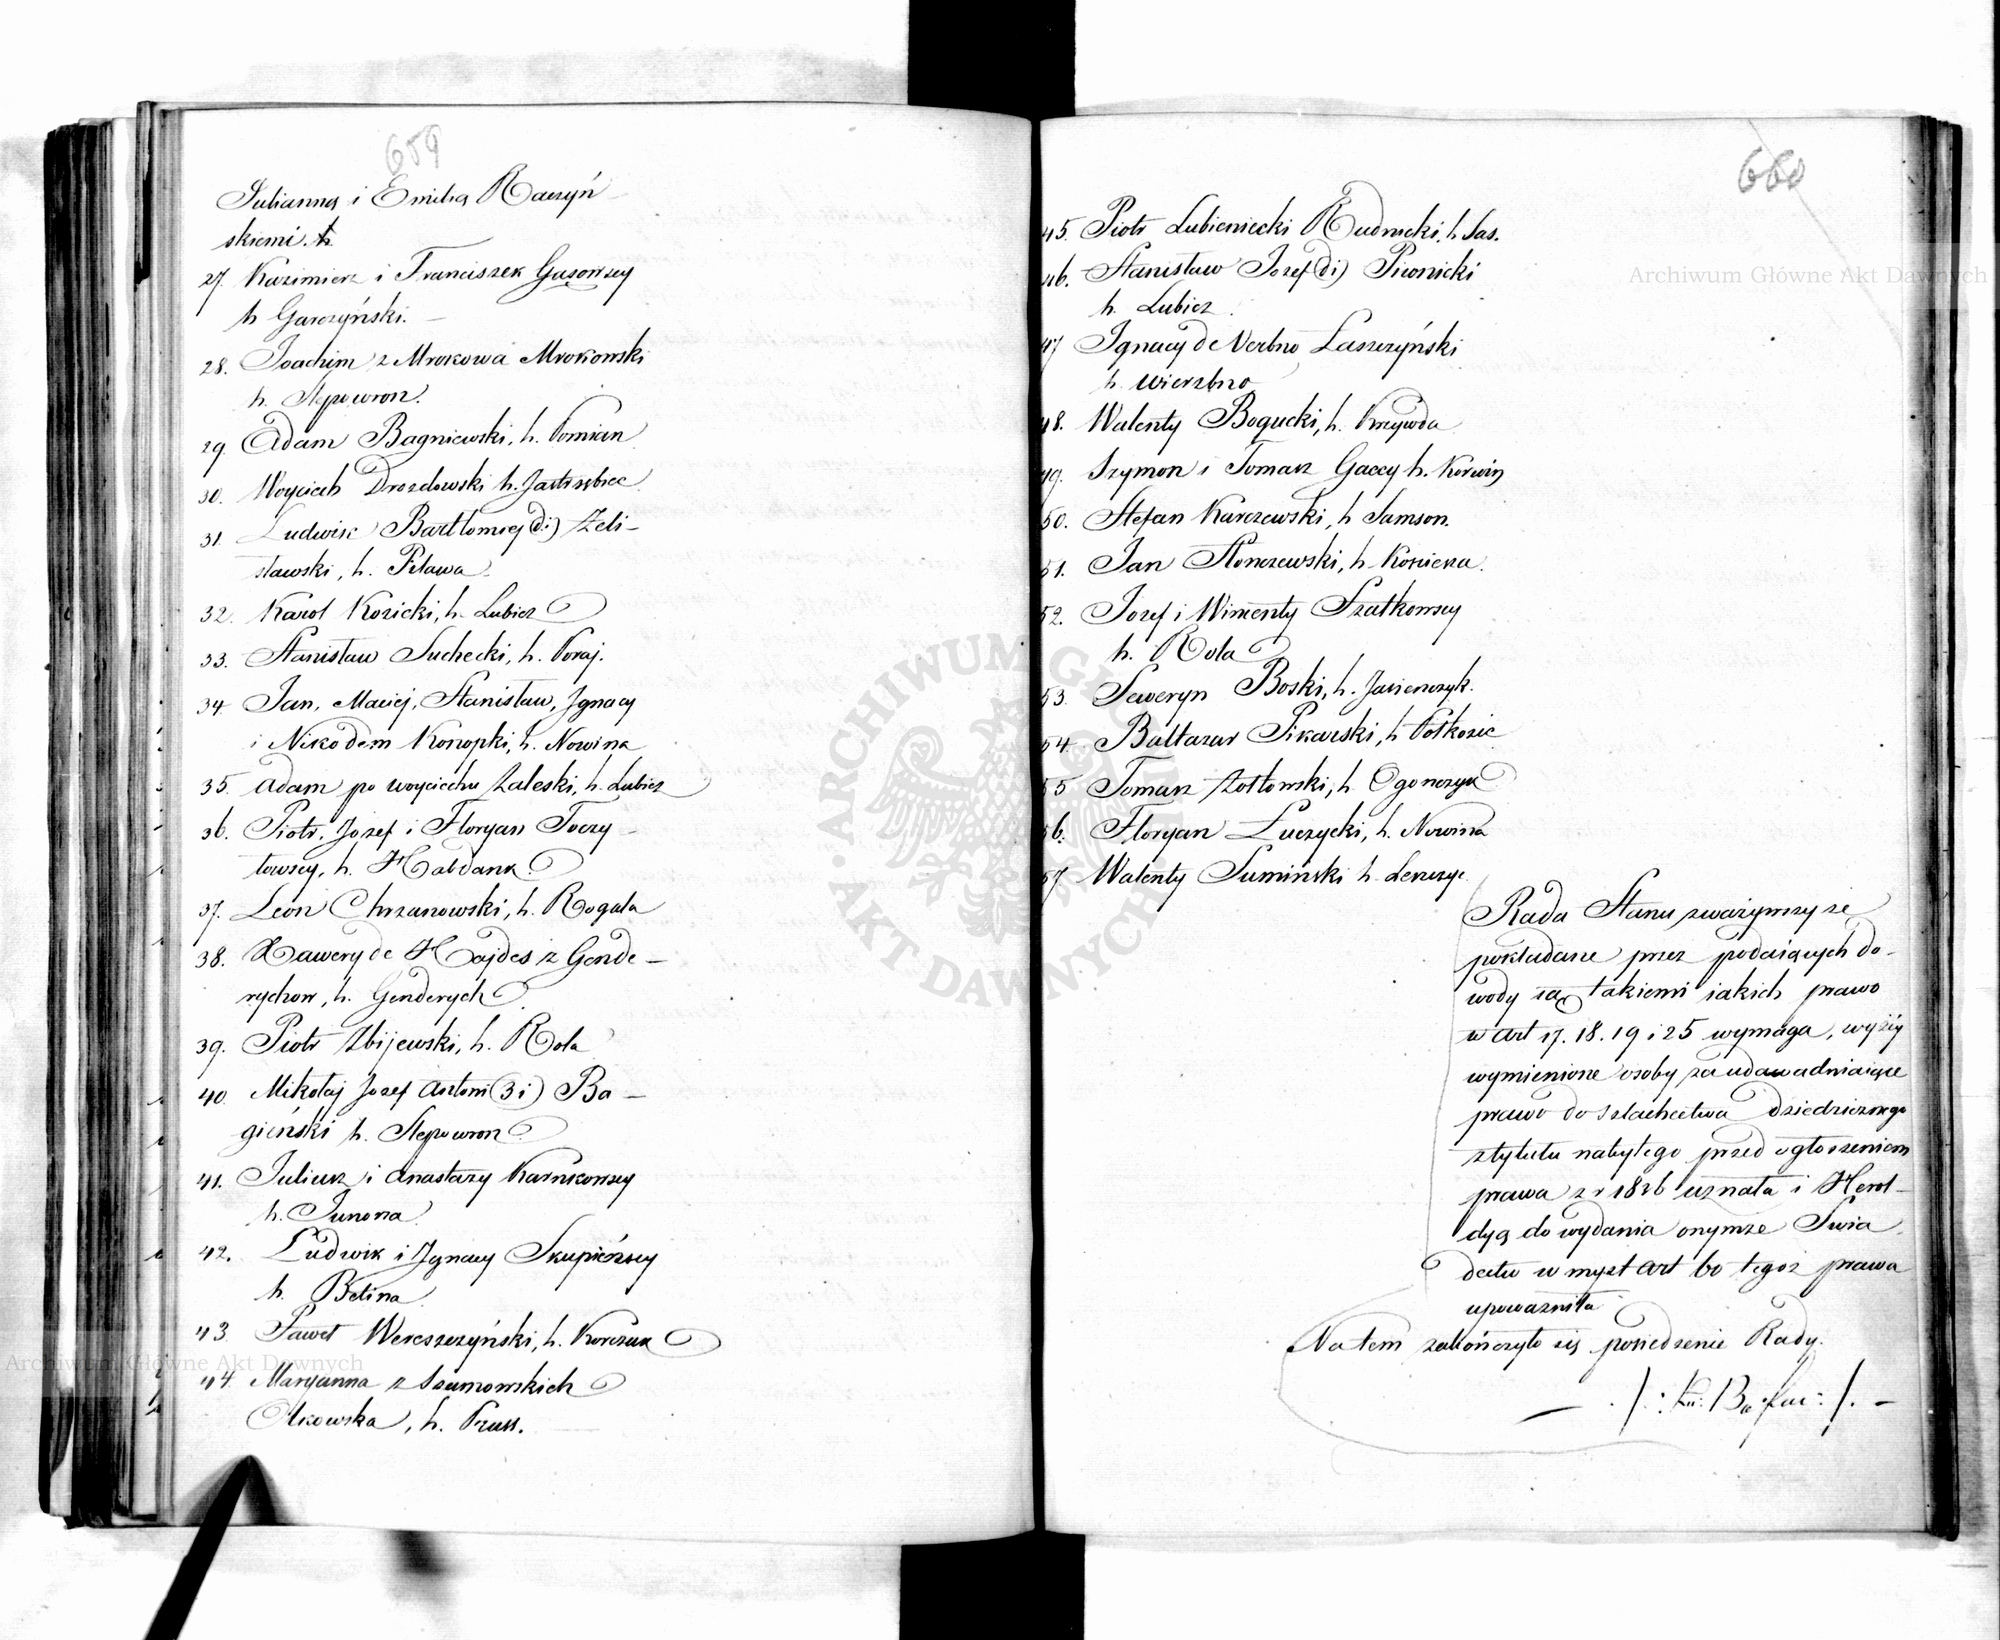 659
Julianną i Emilią Raczyń
skiemi. h
27. Kazimierz i Franciszek Gąsowscy
h Garczyński.
28. Joachim z Mrokowa Mrokowski
h. Ślepowron.
29. Adam Bagniewski, h. Pomian
30. Woyciech Drozdowski h. Jastrzębiec
31. Ludwik Bartłomiey (2i) Zeli-
sławski, h. Pilawa
32. Karol Kozicki, h. Lubicz
33. Stanisław Suchecki, h. Poraj.
34. Jan, Maciej, Stanisław, Ignacy
i Nikodem Konopki, h. Nowina
35. Adam po Woyciechu Zaleski, h. Lubicz
36. Piotr, Jozef i Floryan Toczy
łowscy, h. Habdank
37. Leon Chrzanowski, h. Rogala
38. Xawery de Hajdes z Gende-
rychow, h. Genderych
39. Piotr Zbijewski, h. Rola
40. Mikołaj Jozef Antoni (3i) Ba-
gieński h. Ślepowron
41. Juliusz i Anastazy Karnkowscy
h. Junona
42. Ludwik i Ignacy Skupieńscy
h. Belina
43. Paweł Wereszczyński, h. Korczak
44. Maryanna z Szumowskich
Olkowska, h. Pruss.
660
45. Piotr Lubieniecki Rudnicki, h. Sas.
46. Stanisław Jozef (2i) Piwnicki
h. Lubicz
47 Ignacy de Verbno Łaszczyński
h. Wierzbno
48. Walenty Bogucki, h. Krzywda
49. Szymon i Tomasz Gaccy h. Korwin
50. Stefan Karczewski, h Samson.
51. Jan Słonczewski, h. Korwina.
52. Jozef i Wincenty Szatkowscy
h. Rola
53. Seweryn Boski, h. Jasienczyk.
54. Baltazar Pikarski, h. Połkozic
55 Tomasz Zołtowski, h. Ogonczyk
56. Floryan Łuczycki, h. Nowina
57 Walenty Sumiński h. Leszczyc
Rada Stanu zważywszy że
pokładane przez podaiących do-
wody są takiemi iakich prawo
w art 17. 18. 19 i 25 wymaga, wyżey
wymienione osoby za udawadniaiące
prawo do szlachectwa dziedzicznego
z tytułu nabytego przed ogłoszeniem
prawa z r 1836 uznała i Herol-
dyą do wydania onymże Świa
dectw w myśl art 60 tegoż prawa
upoważniła
Na tem zakończyło się posiedzenie Rady.
Archiwum Główne Akt Dawnych
Archiwum Główne Akt Dawnych
ARCHIWUM GŁÓWNE AKT DAWNYCH